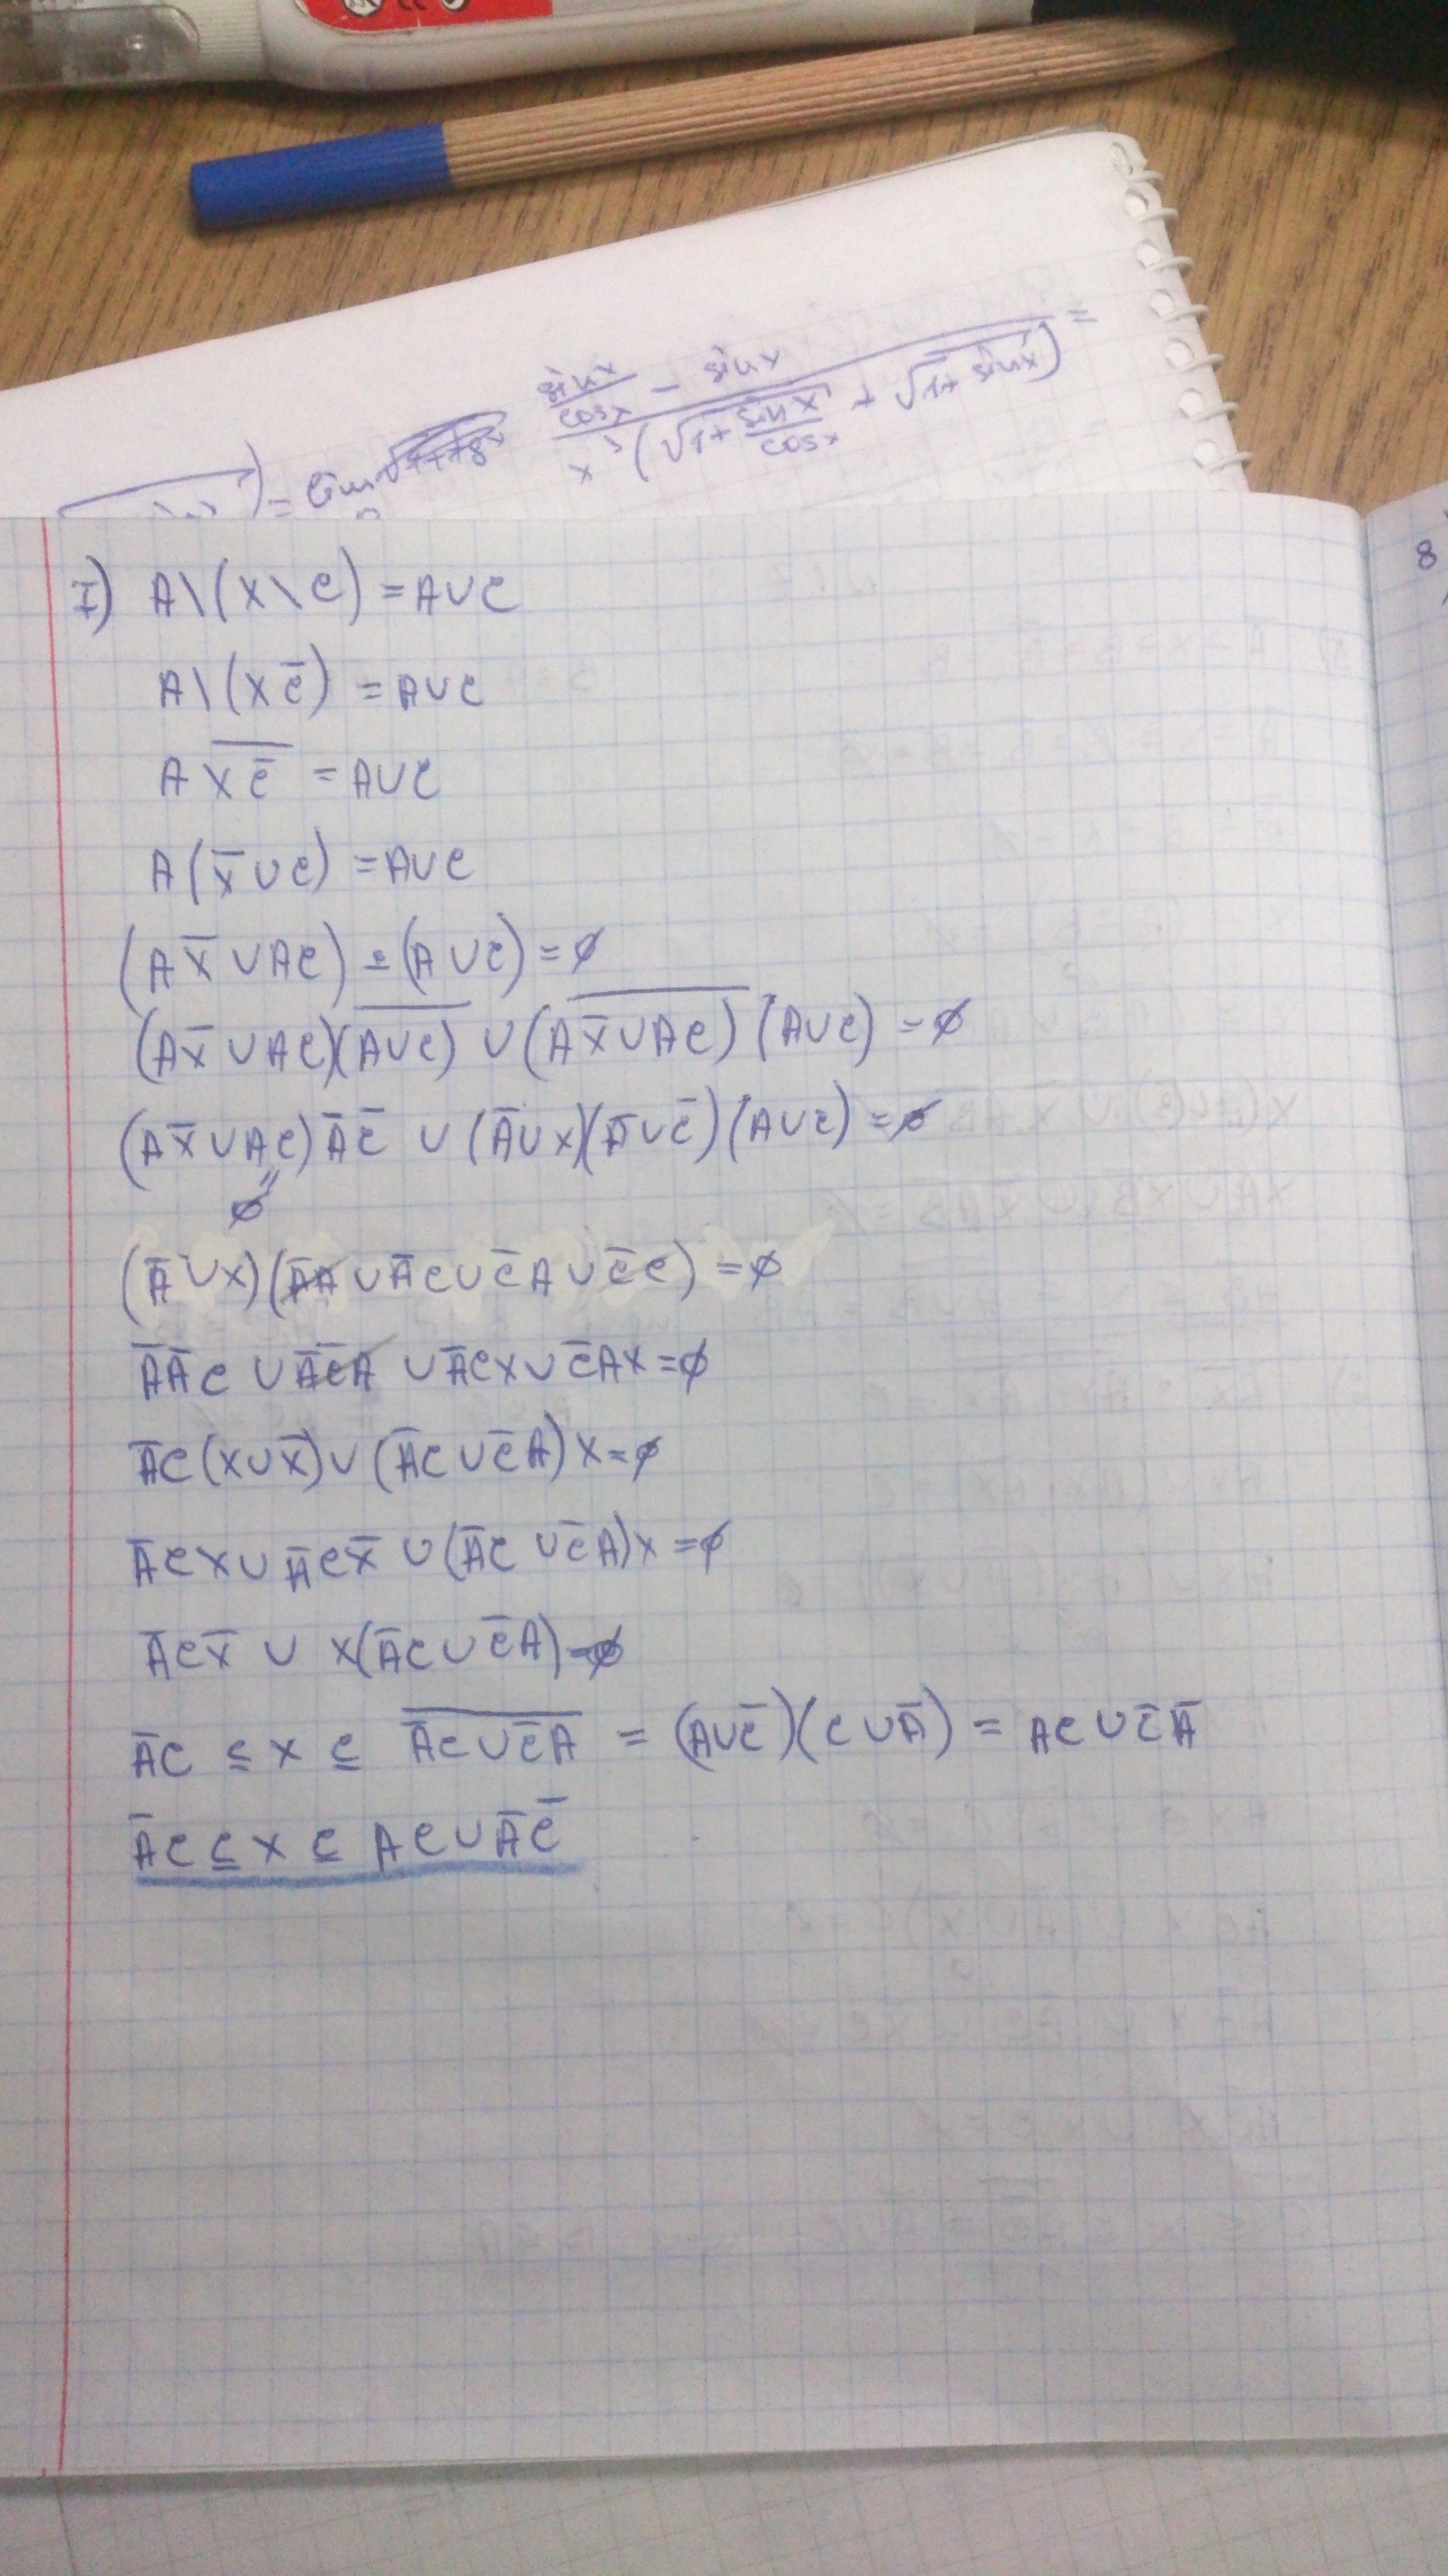 sinx/cosx - sinx
= lim ――― =
x³(√1+ sinx/cosx + √1+ sinx)
8
I) A\(X\C) = A∪C
A\(XC̅) = A∪C
A X̅C̅̅ = A∪C
A(X̅∪C) = A∪C
(AX̅∪AC) ∸ (A∪C) = ∅
(AX̅∪AC)(A̅∪̅C̅) ∪ (A̅X̅̅∪̅A̅C̅)(A∪C) = ∅
(AX̅∪AC)A̅C̅ ∪ (A̅∪X)(A̅∪C̅)(A∪C) = ∅
∅
(A̅∪X)(A̅A∪A̅C∪C̅A∪C̅C) = ∅
A̅A̅C ∪ A̅C̅A ∪ A̅CX∪C̅AX = ∅
A̅C(X∪X̅)∪(A̅C∪C̅A)X = ∅
A̅CX∪A̅CX̅ ∪(A̅C∪C̅A)X = ∅
A̅CX̅ ∪ X(A̅C∪C̅A) = ∅
A̅C ⊆ X ⊆ A̅̅C̅∪̅C̅̅A̅ = (A∪C̅)(C∪A̅) = AC∪C̅A̅
A̅C ⊆ X ⊆ AC∪A̅C̅